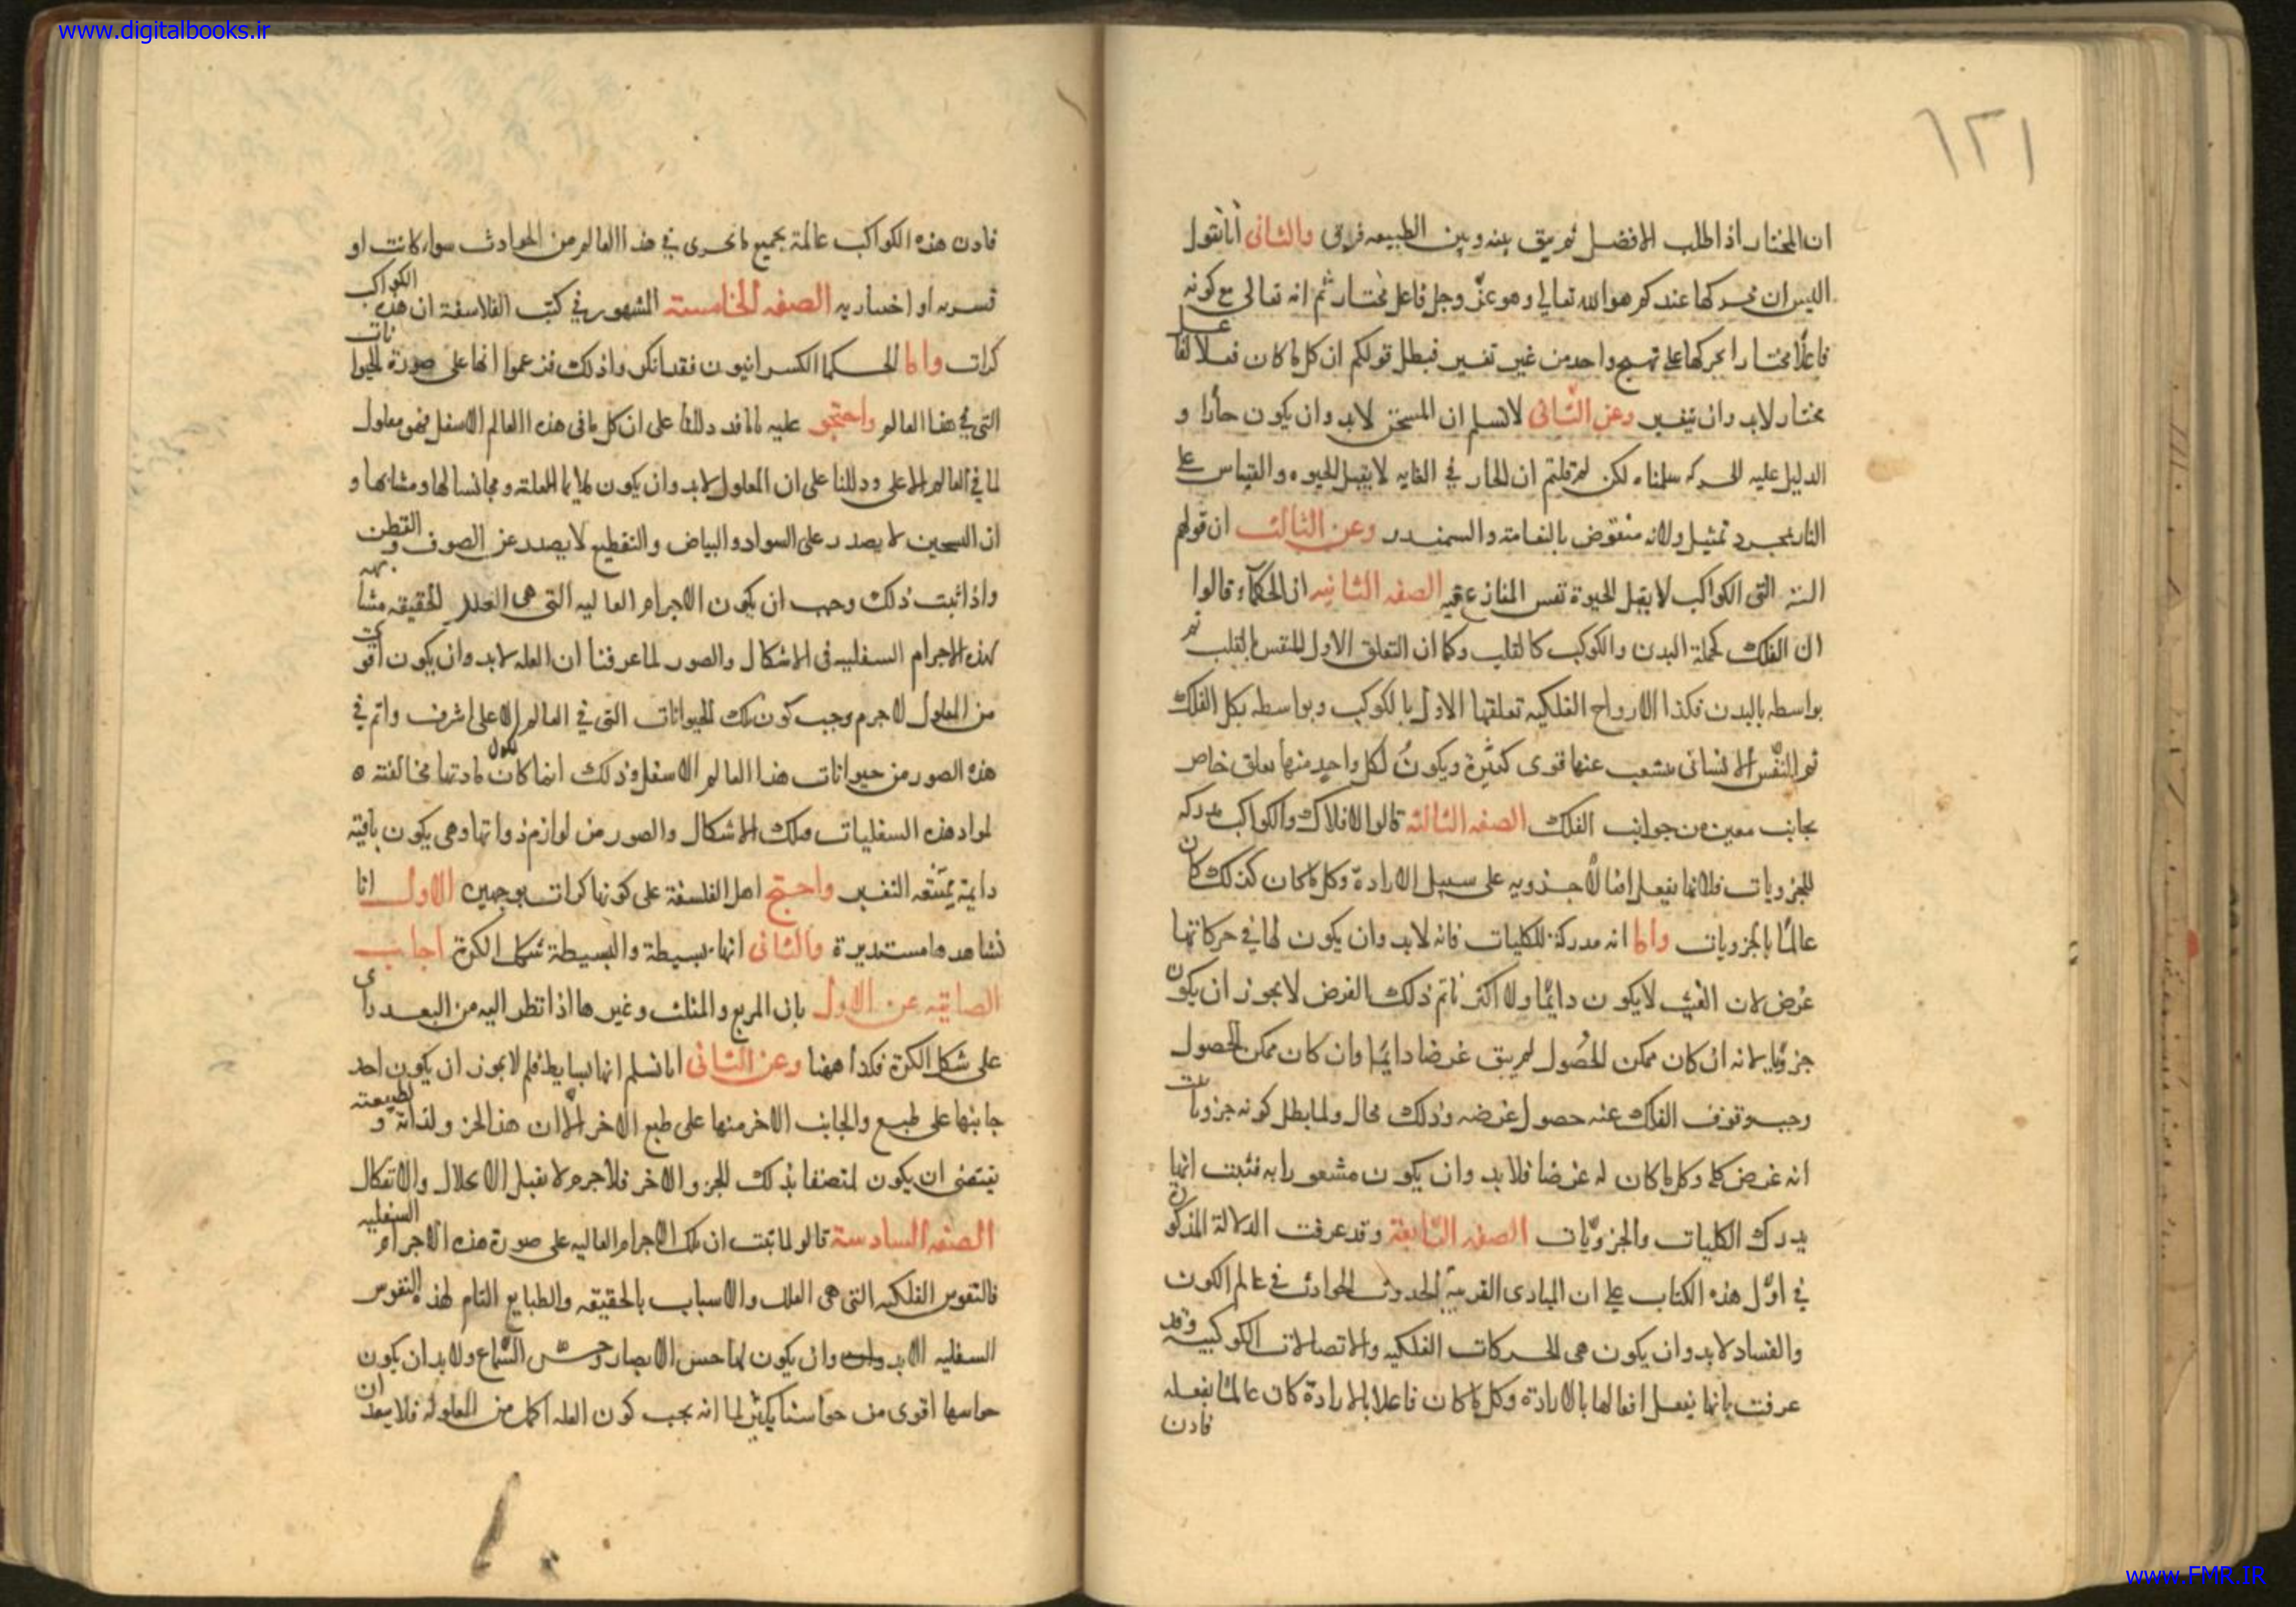 www.digitalbooks.ir
١٢١
ان المختار اذا طلب الافضل لم يبق بينه وبين الطبيعه فرق والثانى أنا نقول
اليس ان محركها عندكم هو الله تعالى وهو عزّ وجل فاعل مختار ثم انه تعالى مع كونه
فاعلًا مختارا يحركها على نهج واحد من غير تغيير فبطل قولكم ان كل ما كان فعلا لفاعل
مختار لابد وان يتغير وعن الثّانى لا نسلم ان المسخن لابد وان يكون حارا و
الدليل عليه الحركه سلمناه لكن لم قلتم ان الحار في الغايه لا يقبل الحيوه والقياس على
النار بمجرد تمثيل ولانه منقوض بالنعامة والسمندر وعن الثالث ان قولهم
التى الكواكب لا يقبل الحيوة نفس المنازع فيه الصفه الثانيه ان الحكمآء قالوا
ان الفلك كجملة البدن والكوكب كالقلب وكما ان التعلق الاول للنفس بالقلب ثم
بواسطه بالبدن فكذا الارواح الفلكيه تعلقها الاول بالكوكب وبواسطه بكل الفلك
ثم النّفس الانسانى ينشعب عنها قوى كثيرة ويكونُ لكل واحد منها تعلق خاص
بجانب معين من جوانب الفلك الصفه الثالثه قالوا الافلاك والكواكب مدركه
للجزويات فلانها يفعل افعالاً جزويه على سبيل الارادة وكل ما كان كذلك كان
عالمًا بالجزويات واما انه مدركة للكليات فانه لابد وان يكون لها في حركاتها
غرض لان العبث لا يكون دايمًا ولا اكثر نا ثم ذلك الغرض لا يجوز ان يكون
جزويا لانه ان كان ممكن الحصُول لم يبق غرضا دايمًا وان كان ممكن الحصول
وجب وقوف الفلك عنه حصول غرضه وذلك محال ولما بطل كونه جزويا ثبت
انه غرض كلى وكل ما كان له غرضا فلابد وان يكون مشعورا به فثبت انها
يدرك الكليات والجزويّات الصفه الرّابعة وقد عرفت الدلالة المذكورة
في اوّل هذه الكتاب على ان المبادى القريبة لحدوث الحوادث فى عالم الكون
والفساد لابد وان يكون هى الحركات الفلكيه والاتصالات الكوكبيه وقد
عرفت بانها يفعل افعالها بالارادة وكل ما كان فاعلا بالارادة كان عالمًا بفعله
فاذن
فاذن هذه الكواكب عالمة بجميع ما يجرى في هذا العالم من الحوادث سواء كانت او
قسريه او اختياريه الصفه الخامسة المشهور في كتب الفلاسفة ان هذه الكواكب
كرات واما الحكما الكسرانيون فقد انكروا ذلك فزعموا انها على صورة الحيوانات
التى في هذا العالم واحتجو عليه بانا قد دللنا على ان كل ما فى هذه العالم الاسفل فهو معلول
لما في العالم الاعلى ودللنا على ان المعلول لابد وان يكون ملايما للعلة ومجانسا لها ومشابها و
ان السخين لا يصدر على السواد والبياض والتقطيع لا يصدر عن الصوف والقطن
واذا ثبت ذلك وجب ان يكون الاجرام العاليه التى هى العلل الحقيقه مشابهه
لهذه الاجرام السفليه فى الاشكال والصور لما عرفنا ان العله لابد وان يكون اقوى
من المعلول لا جرم وجب كون تلك الحيوانات التى في العالم الاعلى اشرف واتم في
هذه الصور من حيوانات هذا العالم الاسفل وذلك انما كان لكون مادتها مخالفته
لمواد هذه السفليات وتلك الاشكال والصور من لوازم ذواتها وهى يكون باقية
دايمة يمتنعه التغير واحتج اهل الفلسفة على كونها كرات بوجهين الاول انا
نشاهدها مستديرة والثانى انها بسيطة والبسيطة شكل الكرة اجاب
الصابيه عن الاول بان المربع والمثلث وغيرها اذا نظر اليه من البعد راى
على شكل الكرة فكذا ههنا وعن الثانى انا نسلم انها بسايط فلم لا يجوز ان يكون احد
جانبها على طبع والجانب الاخر منها على طبع الاخر الّا ان هذا الجزو لذاته و لطبيعته
يقتضى ان يكون ملتصقا بذلك الجزو الاخر فلا جرم لا يقبل الانحلال والانفكال
الصفه السادسة قالو لما ثبت ان تلك الاجرام العاليه على صورة هذه الاجرام السفليه
فالنفوس الفلكيه التى هى العلل والاسباب بالحقيقه والطبايع التام لهذه النفوس
السفليه لابد وان يكون لها حس الابصار وحس السّماع ولابد ان يكون
حواسها اقوى من حواسنا بكثير لما انه يجب كون العله اكمل من المعلوله فلا يبعد ان
www.FMR.IR